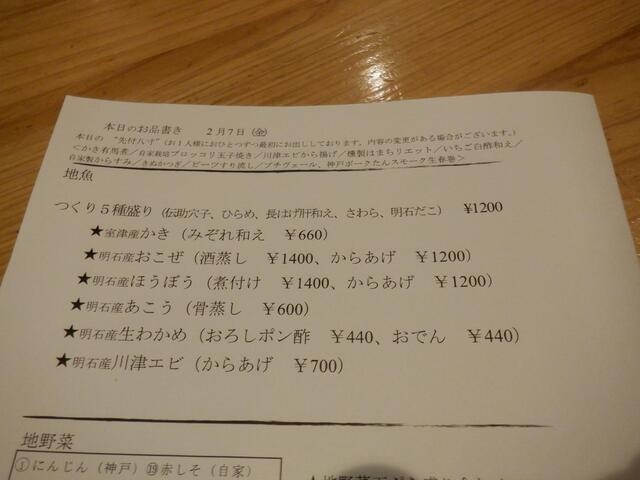 本日のお品書き　2月7日（金）
本日の “先付八寸”（お1人様におひとつずつ最初にお出ししております。内容の変更がある場合がございます。）
＜かき有馬煮／自家栽培ブロッコリ玉子焼き／川津エビから揚げ／燻製はまちリエット／いちご白酢和え／
自家製からすみ／きぬかつぎ／ビーツすり流し／プチヴェール、神戸ポークたんスモーク生春巻＞
地魚
つくり5種盛り（伝助穴子、ひらめ、長はげ肝和え、さわら、明石だこ）　¥1200
★室津産かき（みぞれ和え　￥660）
★明石産おこぜ（酒蒸し　￥1400、からあげ　￥1200）
★明石産ほうぼう（煮付け　￥1400、からあげ　￥1200）
★明石産あこう（骨蒸し　￥600）
★明石産生わかめ（おろしポン酢　￥440、おでん　￥440）
★明石産川津エビ（からあげ　￥700）
地野菜
①にんじん（神戸）⑲赤しそ（自家）